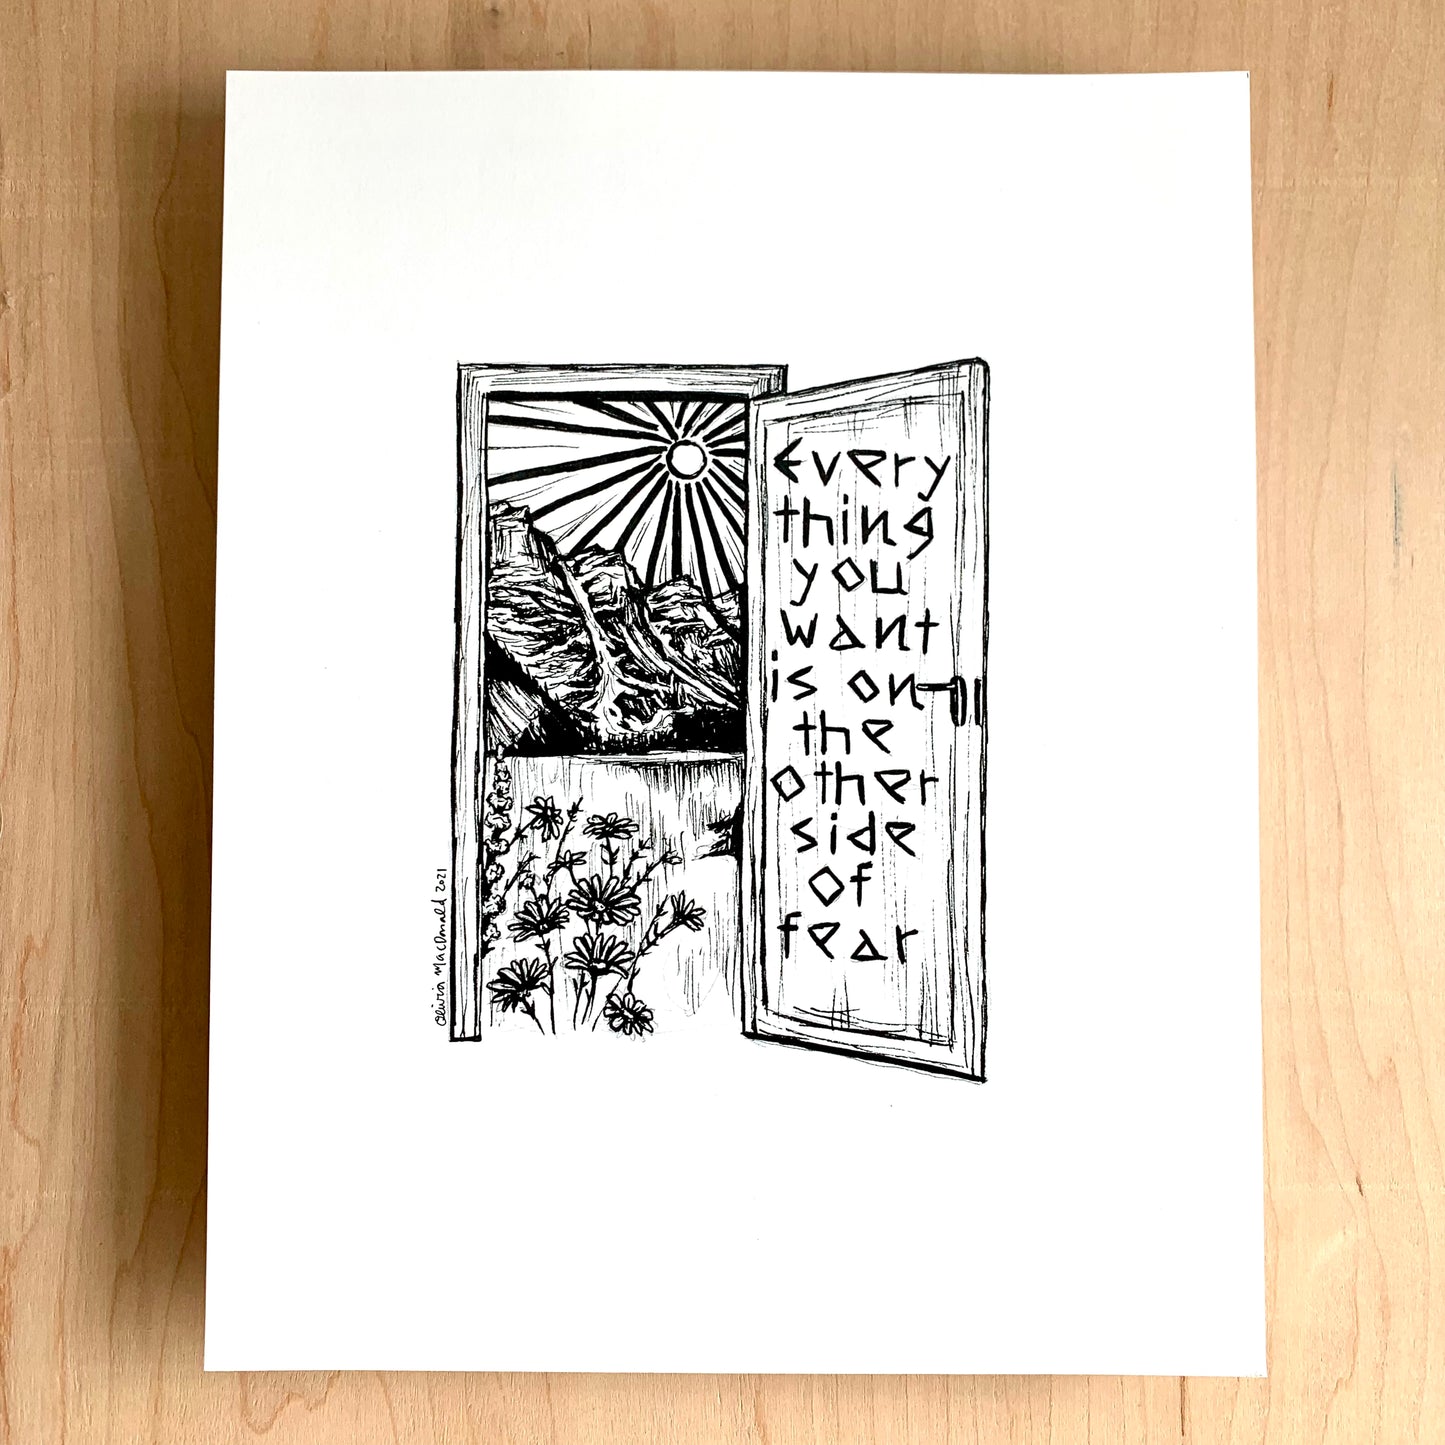 Every
thing
you
want
is on
the
other
side
of
fear
Olivia MacDonald 2021